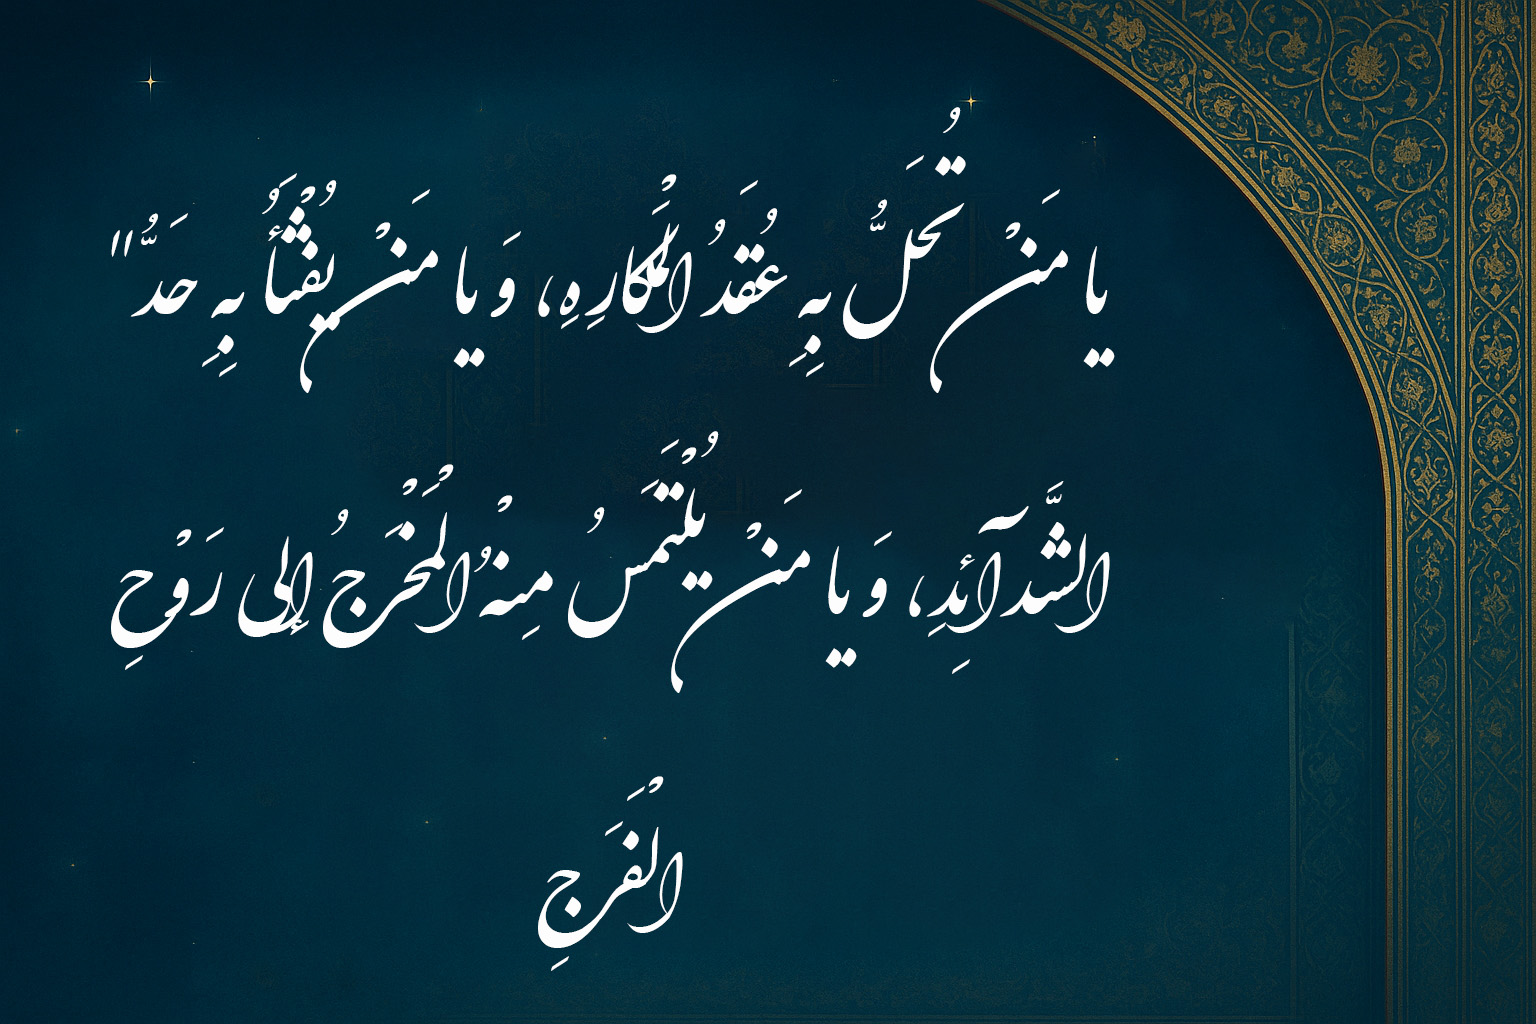 يا مَنْ تُحَلُّ بِهِ عُقَدُ الْمَكارِهِ، وَ يا مَنْ يُفْثَأُ بِهِ حَدُّ"
الشَّدآئِدِ، وَ يا مَنْ يُلْتَمَسُ مِنْهُ الْمَخْرَجُ إلى رَوْحِ
الْفَرَجِ